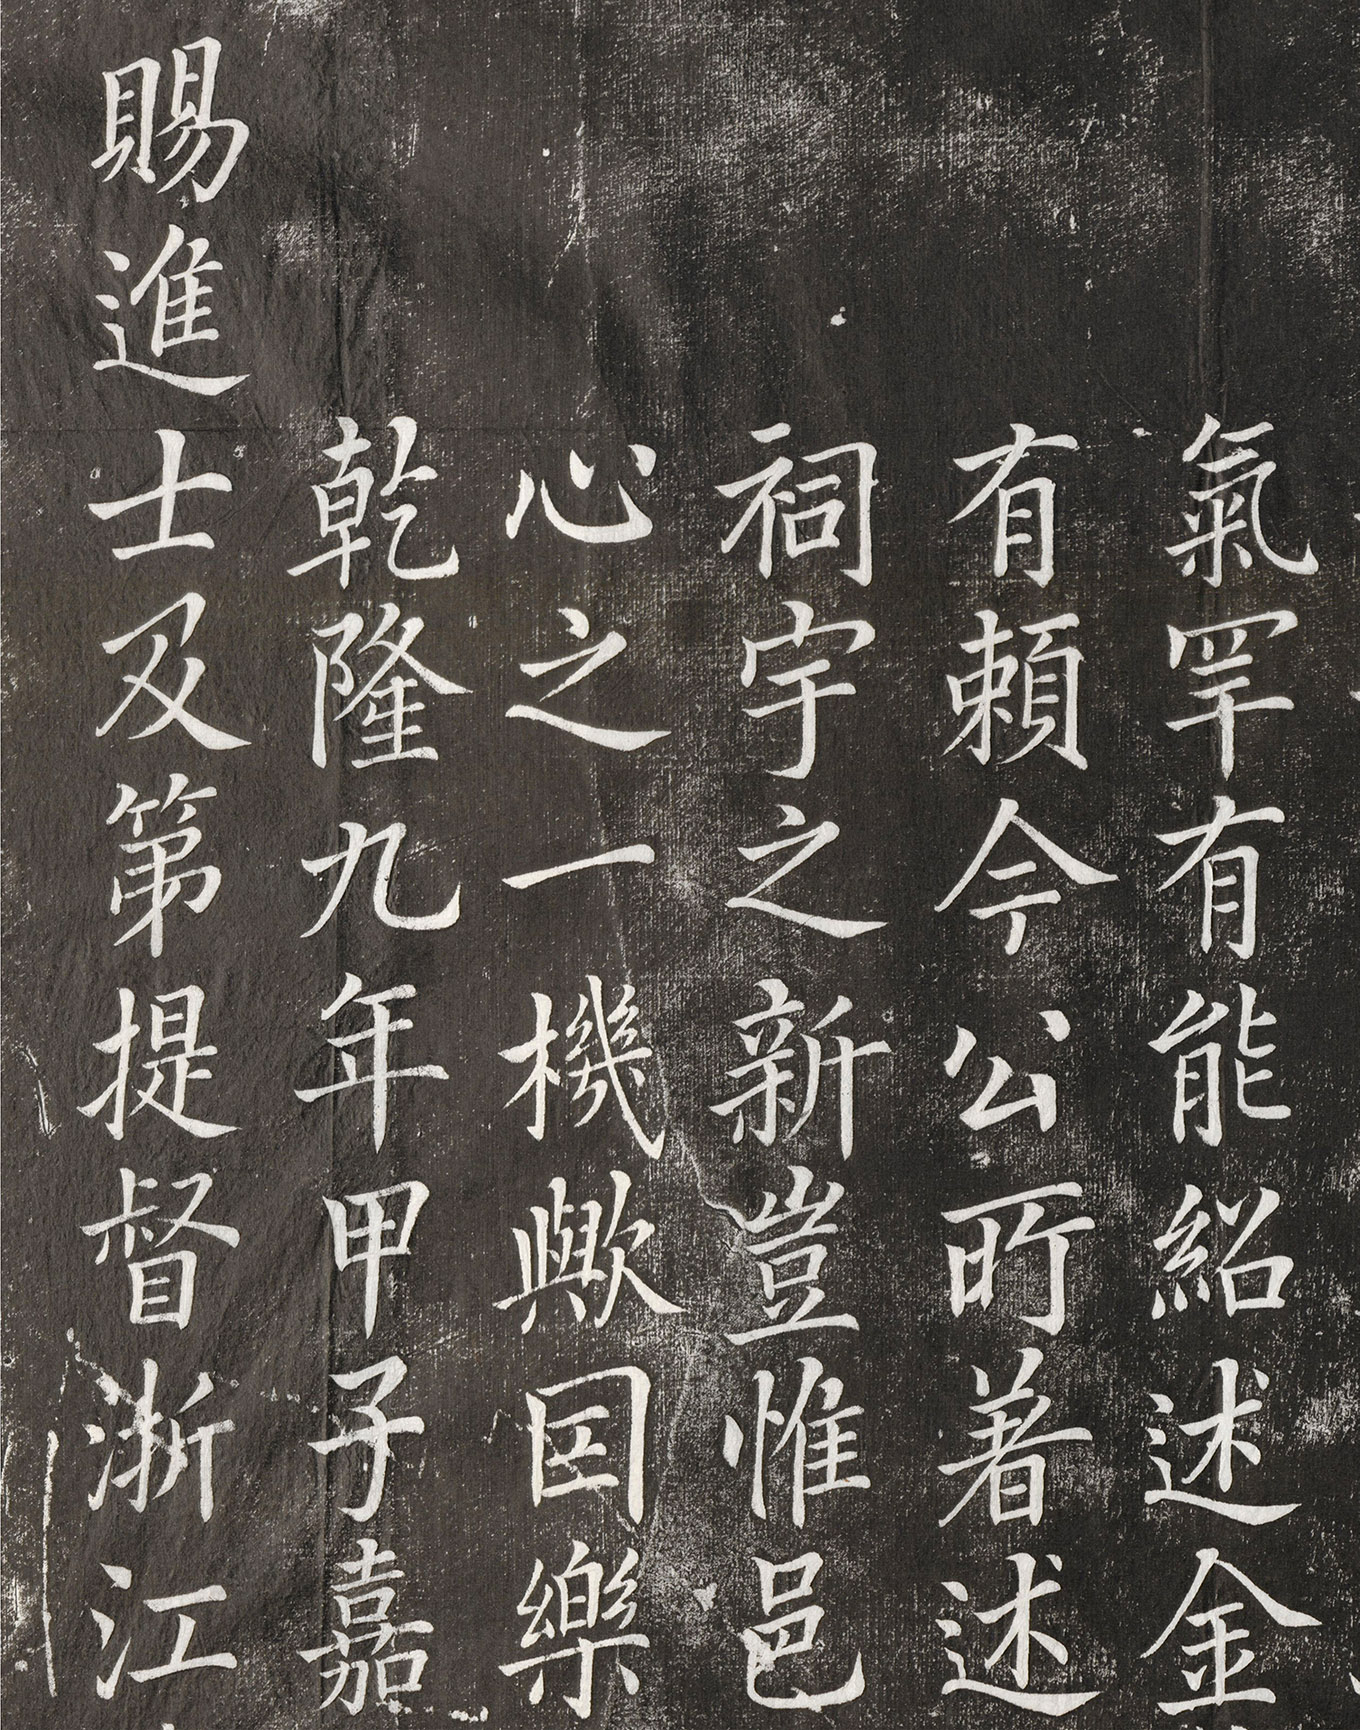 氣罕有能紹述金
有賴今公所著述
祠宇之新豈惟邑
心之一機歟因樂
乾隆九年甲子嘉
賜進士及第提督浙江